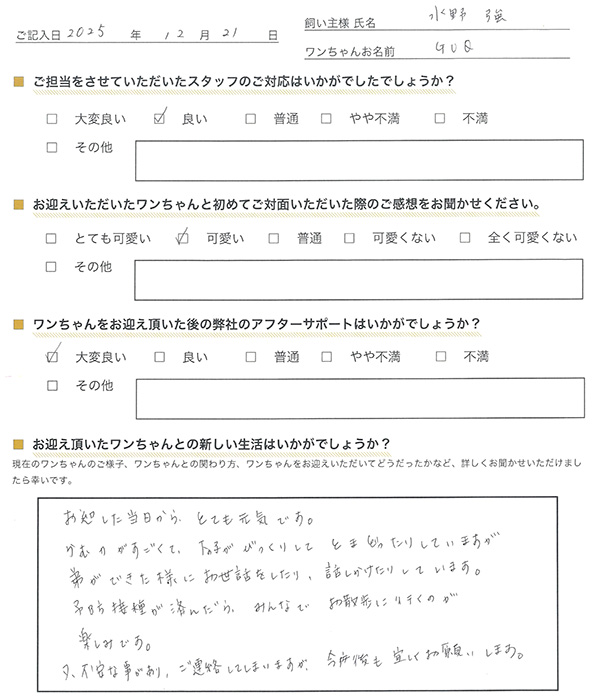 ご記入日 2025 年 12 月 21 日
飼い主様 氏名 水野 強
ワンちゃんお名前 GUQ
■ ご担当をさせていただいたスタッフのご対応はいかがでしたでしょうか？
□ 大変良い ☑ 良い □ 普通 □ やや不満 □ 不満
□ その他
■ お迎えいただいたワンちゃんと初めてご対面いただいた際のご感想をお聞かせください。
□ とても可愛い ☑ 可愛い □ 普通 □ 可愛くない □ 全く可愛くない
□ その他
■ ワンちゃんをお迎え頂いた後の弊社のアフターサポートはいかがでしょうか？
☑ 大変良い □ 良い □ 普通 □ やや不満 □ 不満
□ その他
■ お迎え頂いたワンちゃんとの新しい生活はいかがでしょうか？
現在のワンちゃんのご様子、ワンちゃんとの関わり方、ワンちゃんをお迎えいただいてどうだったかなど、詳しくお聞かせいただけまし
たら幸いです。
お迎した当日から、とても元気です。
かむ力がすごくて、息子がびっくりして とまどったりしていますが
弟ができた様に お世話をしたり、話しかけたりしています。
予防接種が済んだら、みんなで お散歩に行くのが
楽しみです。
又、不安な事があり、ご連絡してしまいますが、今後も 宜しくお願い します。